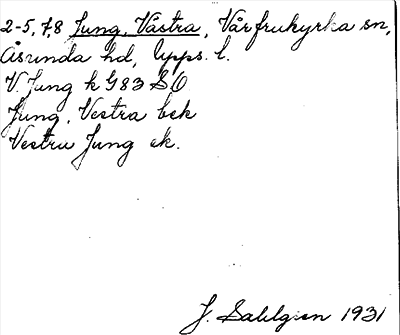 2-5, 7,8 Jung, Västra, Vårfrukyrka sn,
Åsunda hd, Upps. l.
V. Jung k G83 SO
Jung, Vestra bek
Vestru Jung ek.
J. Sahlgren 1931